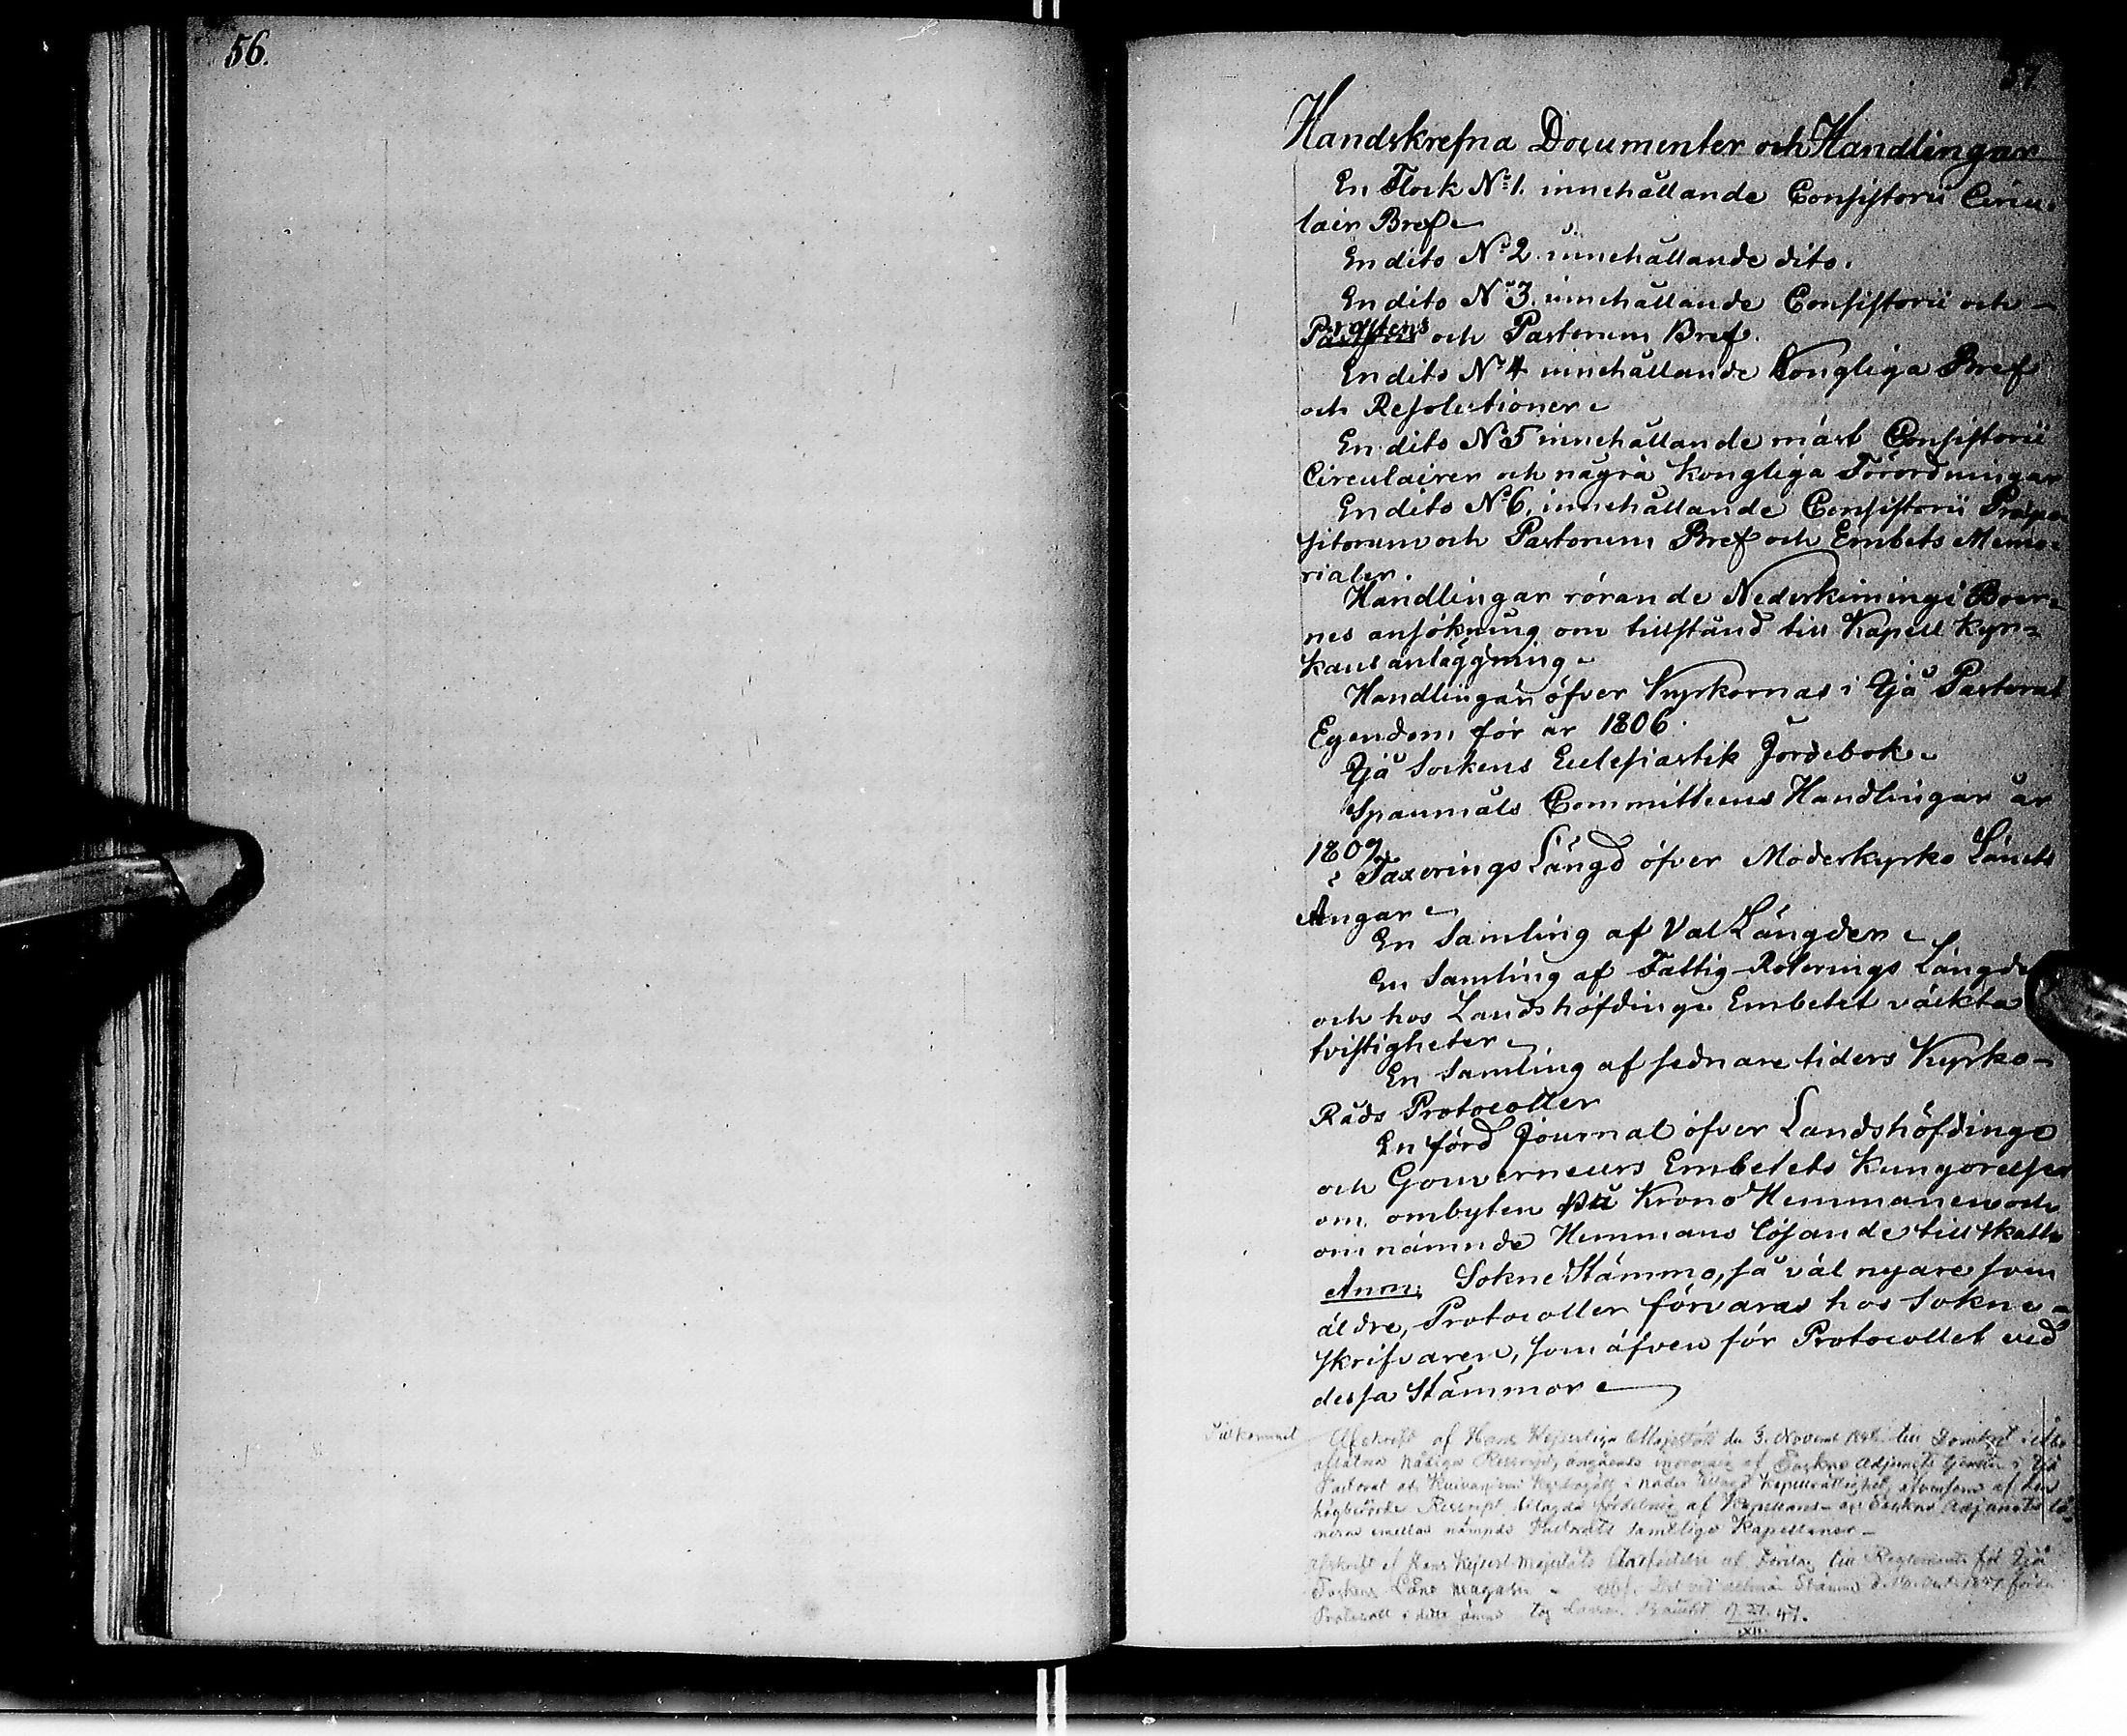 56.
57.
Handskrefna Documenter och Handlingar
En Flock No 1. innehållande Consistorii Circu-
lair Bref
En dito No 2 innehållande dito.
En dito No 3. innehållande Consistorii och
Prostens och Pastorum Bref.
En dito No 4 innehållande Kongliga Bref
och Resolutioner
En dito No 5 innehållande mäst Consistorii
Circulairer och några Kongliga Förordningar
En dito No 6. innehållande Consistorii Præpo
sitorum och Pastorum Bref och Embets Memo-
rialer.
Handlingar rörande Nederkimingi Boer-
nes ansökning om tillstånd till Kapell Kyr-
kans anläggning
Handlingar öfver Kyrkornas i Ijå Pastorat
Egendom för år 1806.
Ijå Sockens Eclesiastik Jordebok
Spanmåls Committeens Handlingar år
1809.
Taxerings Längd öfver Moderkyrko Länets
Ängar
En Samling af Val Längder
En Samling af Fattig-Roterings Längde
och hos Landshöfdinge Embetet väckta
tvistigheter
En Samling af sednare tiders Kyrko-
Råds Protocoller
En förd Journal öfver Landshöfdinge
och Gouverneurs Embetets Kungörelser
om ombyten på Krono Hemmanen och
omnämnde Hemmans lösande till skatte
Anm: Sokne Stämmo, så väl nyare som
äldre, Protocoller förvaras hos Sokne-
skrifvaren, som äfven för Protocollet vid
dessa Stämmor
Tillkommit
Afskrift af Hans Kejserliga Majestäts den 3. Novemb till Domkapt i Åbo
aflåtna Nådiga Rescript, angående af Sockne Adjuncts i Ijå
Pastorat och Kuivaniemi i Nåder Kapellrättighet, äfvensom af
högberörde Rescript bilagda fördelning af Kapellans- och Sockne Adjuncts lö
nerne emellan nämnde Pastorats samtlige Kapellaner
Afskrift af Hans Kejserl. Majestäts Stadfästelse af Förslag till Reglemente för Ijå
Sockens Låne Magasin - Det vid allmän Stämma d. förda
Protocoll i detta ämne tog 47.
XII.